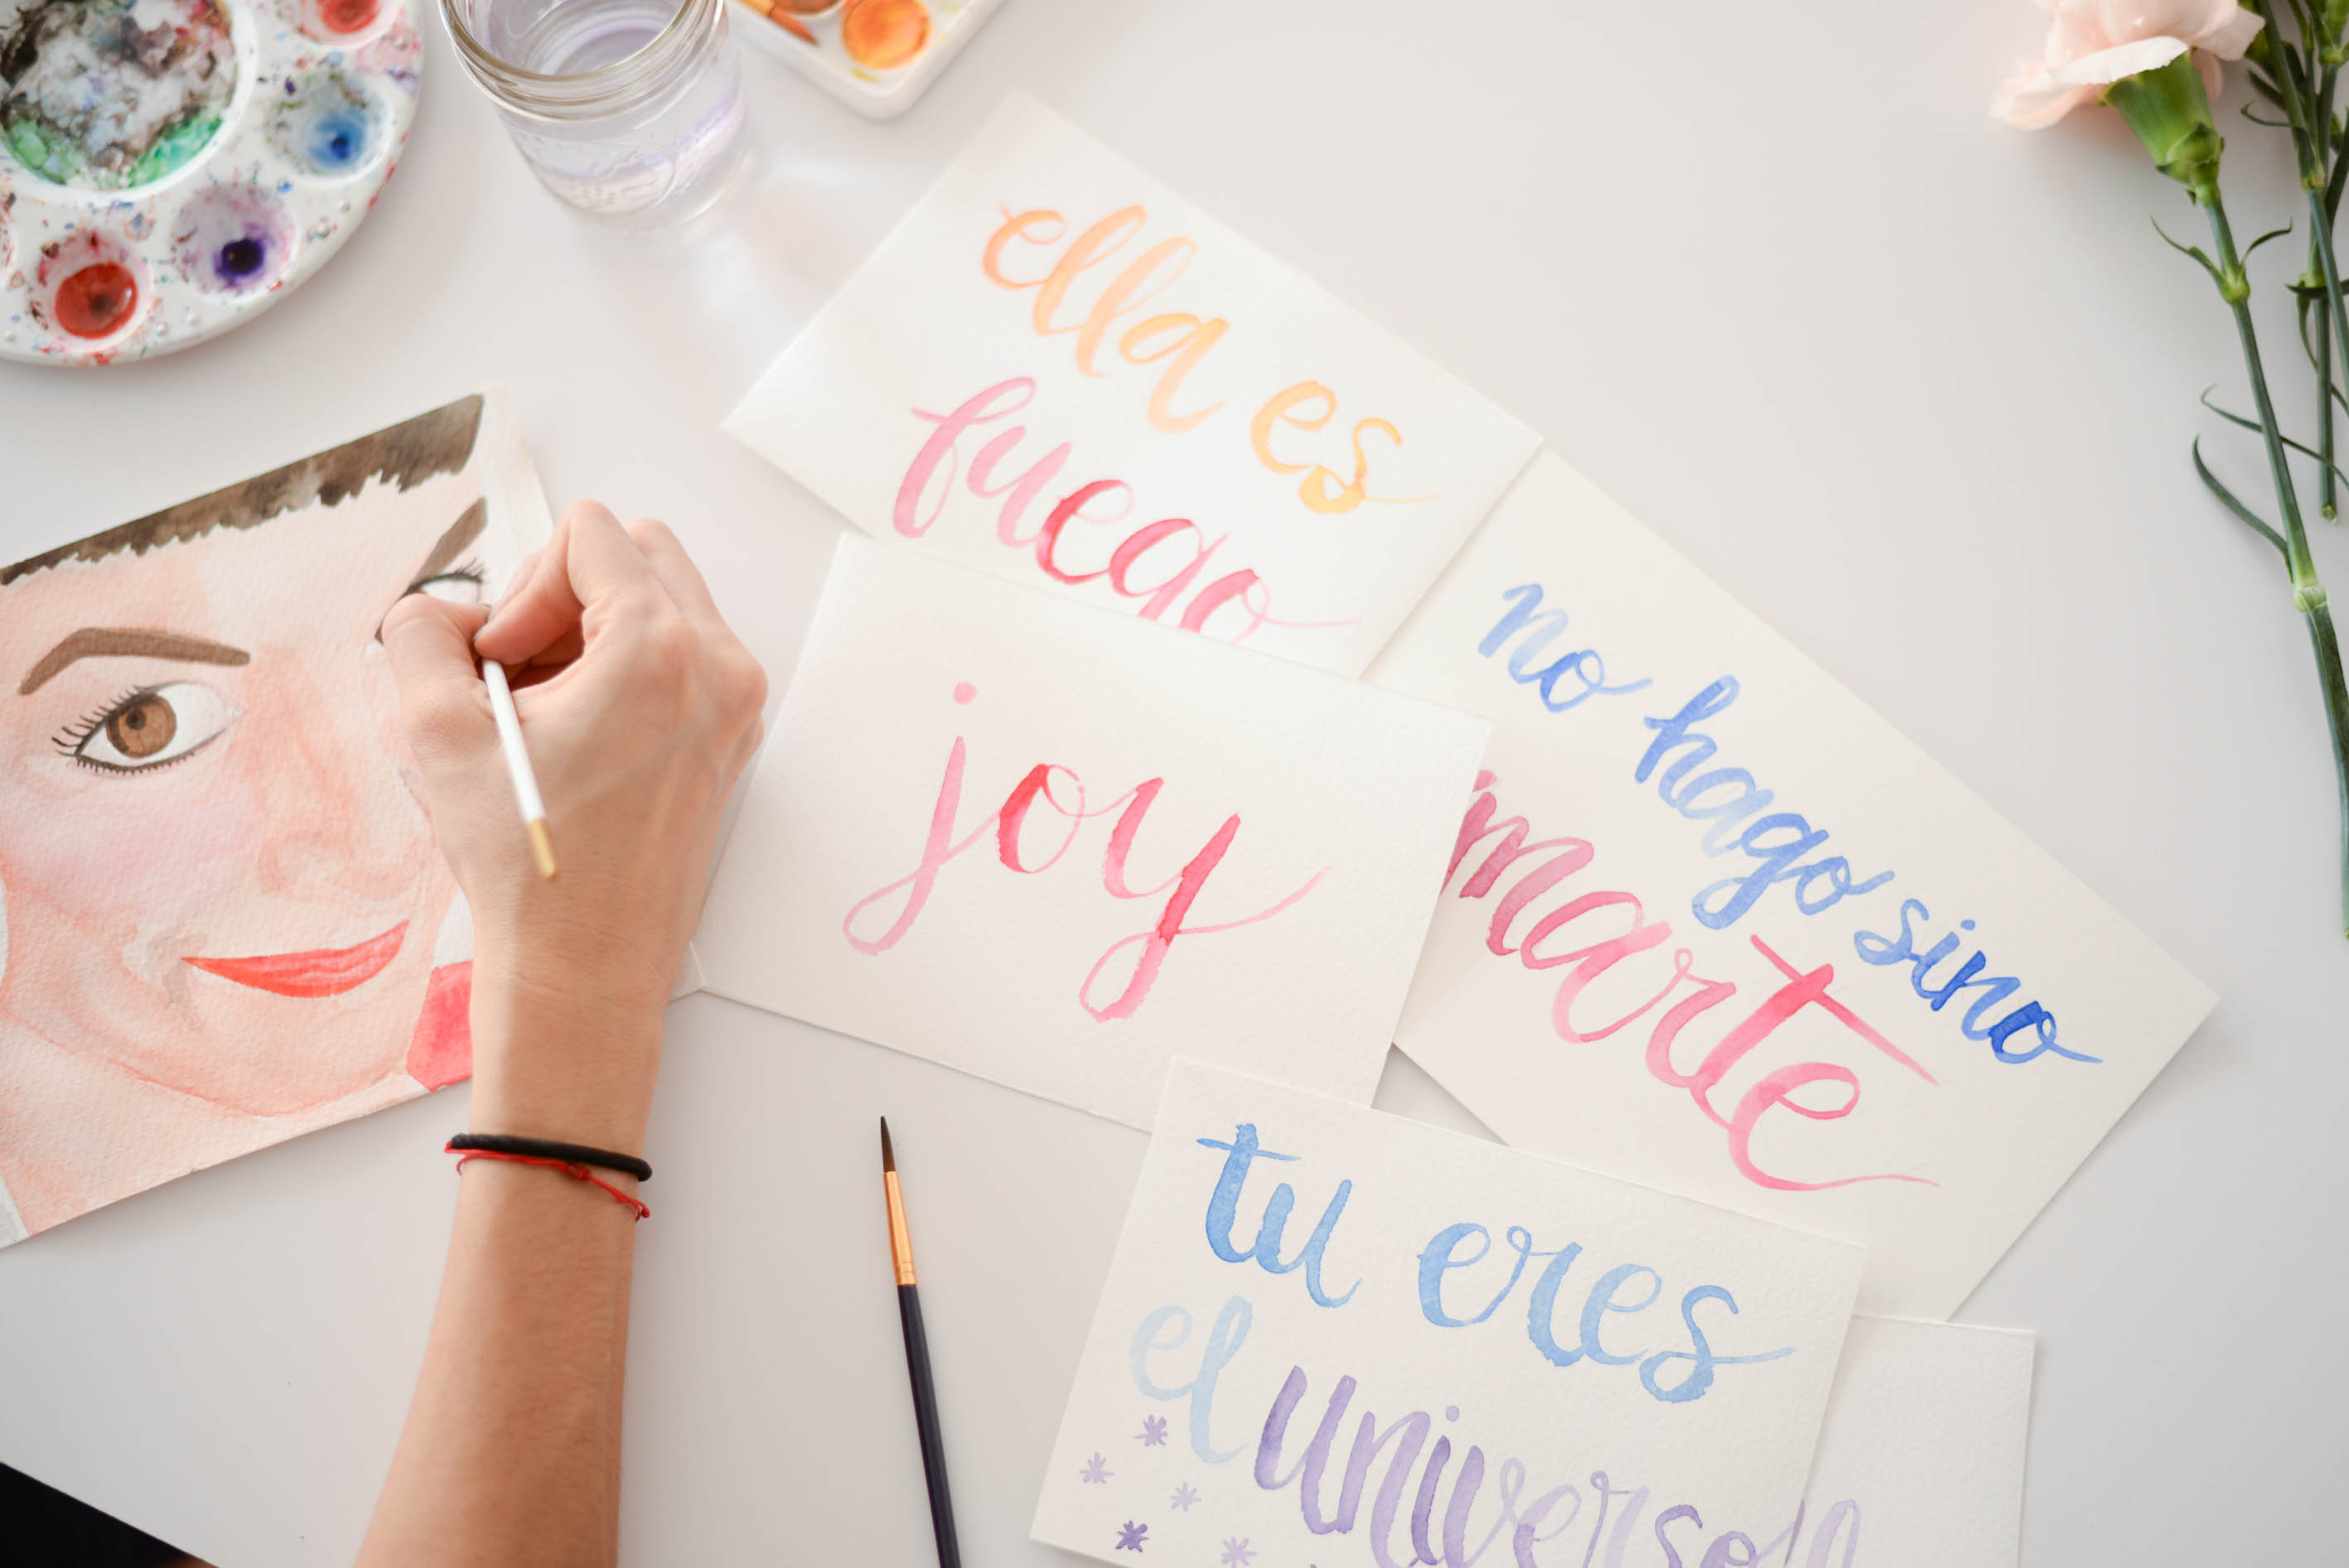 ella es
fuego
joy
no hago sino
marte
tu eres
el universo